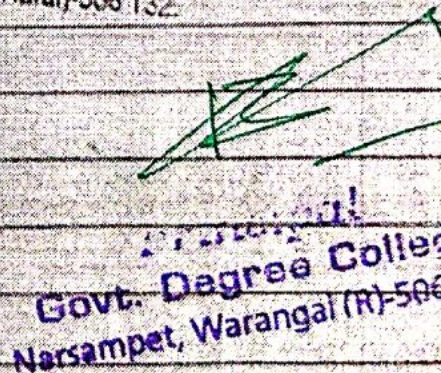 506 132.
Principal
Govt. Degree Colleg
Narsampet, Warangal (R)-506